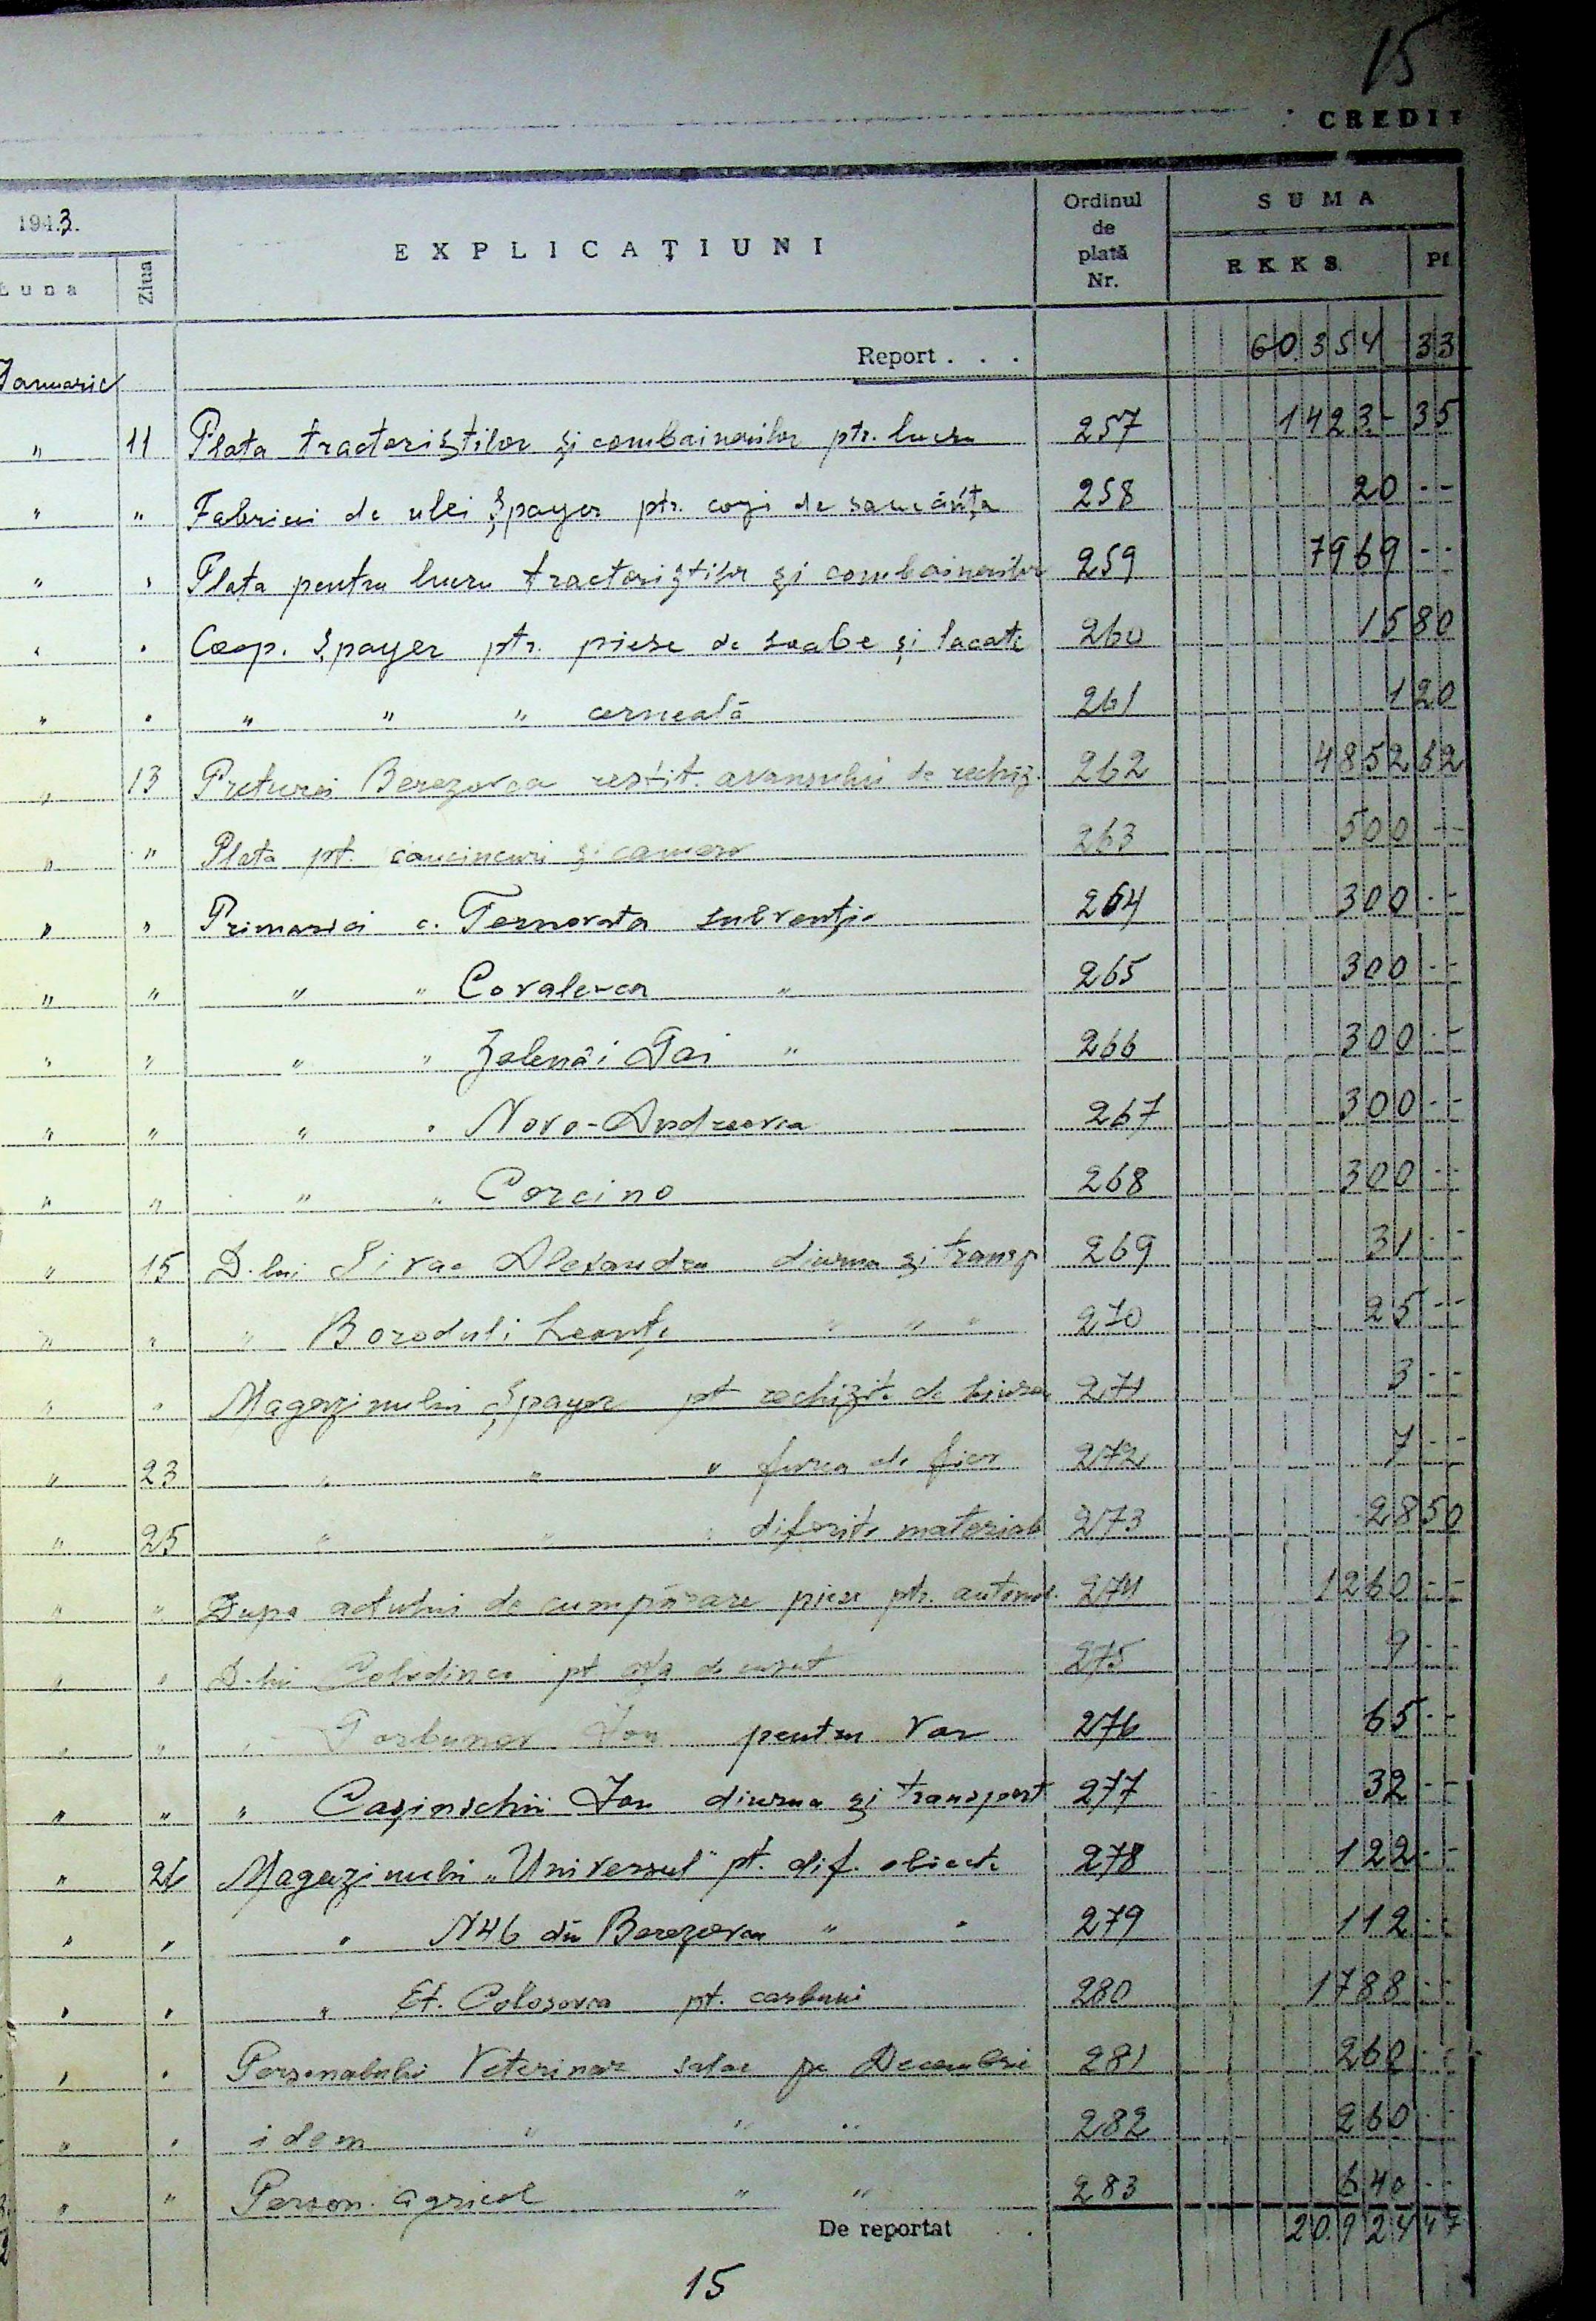 15
CREDIT
1943.
Luna Ziua EXPLICAȚIUNI Ordinul de plată Nr. SUMA R K K S. Pf.
Report . . . 60.354 33
Januarie
" 11 Plata tractoriștilor și combainerilor ptr. lucru 257 1423.- 35
" " Fabricei de ulei Șpayer ptr. cozi de samânța 258 20 --
" " Plata pentru lucru tractoriștilor și combainerilor 259 7969 --
" " Coop. Șpayer ptr. piese de soabe și lacate 260 15 80
" " " " " cerneală 261 1 20
" 13 Preturei Berezovca restit. avansului de rechiz. 262 4852 62
" " Plata pt. cauciucuri și camere 263 500 --
" " Primariei c. Ternovata subvenție 264 300 --
" " " " Covalevca " 265 300 --
" " " " Zelenâi Gai " 266 300 --
" " " " Novo-Andreevca 267 300 --
" " " " Corcino 268 300 --
" 15 D-lui Sivac Alexandru diurna și transp 269 31 --
" " " Boroduli Leonte " " " 270 25 --
" " Magazinului Șpayer pt rechizite de birou 271 3 --
" 23 " " " furca de fier 272 7 --
" 25 " " " diferite materiale 273 28 50
" " Dupa actului de cumpărare piese ptr. automob. 274 1260 --
" " D-lui pt de 275 9 --
" " " Gorbunov Ion pentru var 276 65 --
" " " Cașinschii Ion diurna și transport 277 32 --
" 26 Magazinului "Universul" pt. dif. obiecte 278 122 --
" " " N46 din Berezovca " " 279 112 --
" " " St. Colosovca pt. carbuni 280 1788 --
" " Personalului Veterinar salar pe Decembrie 281 260 --
" " idem " " " 282 260 --
" " Person. agricol " " 283 640 --
De reportat . 20.924 47
15